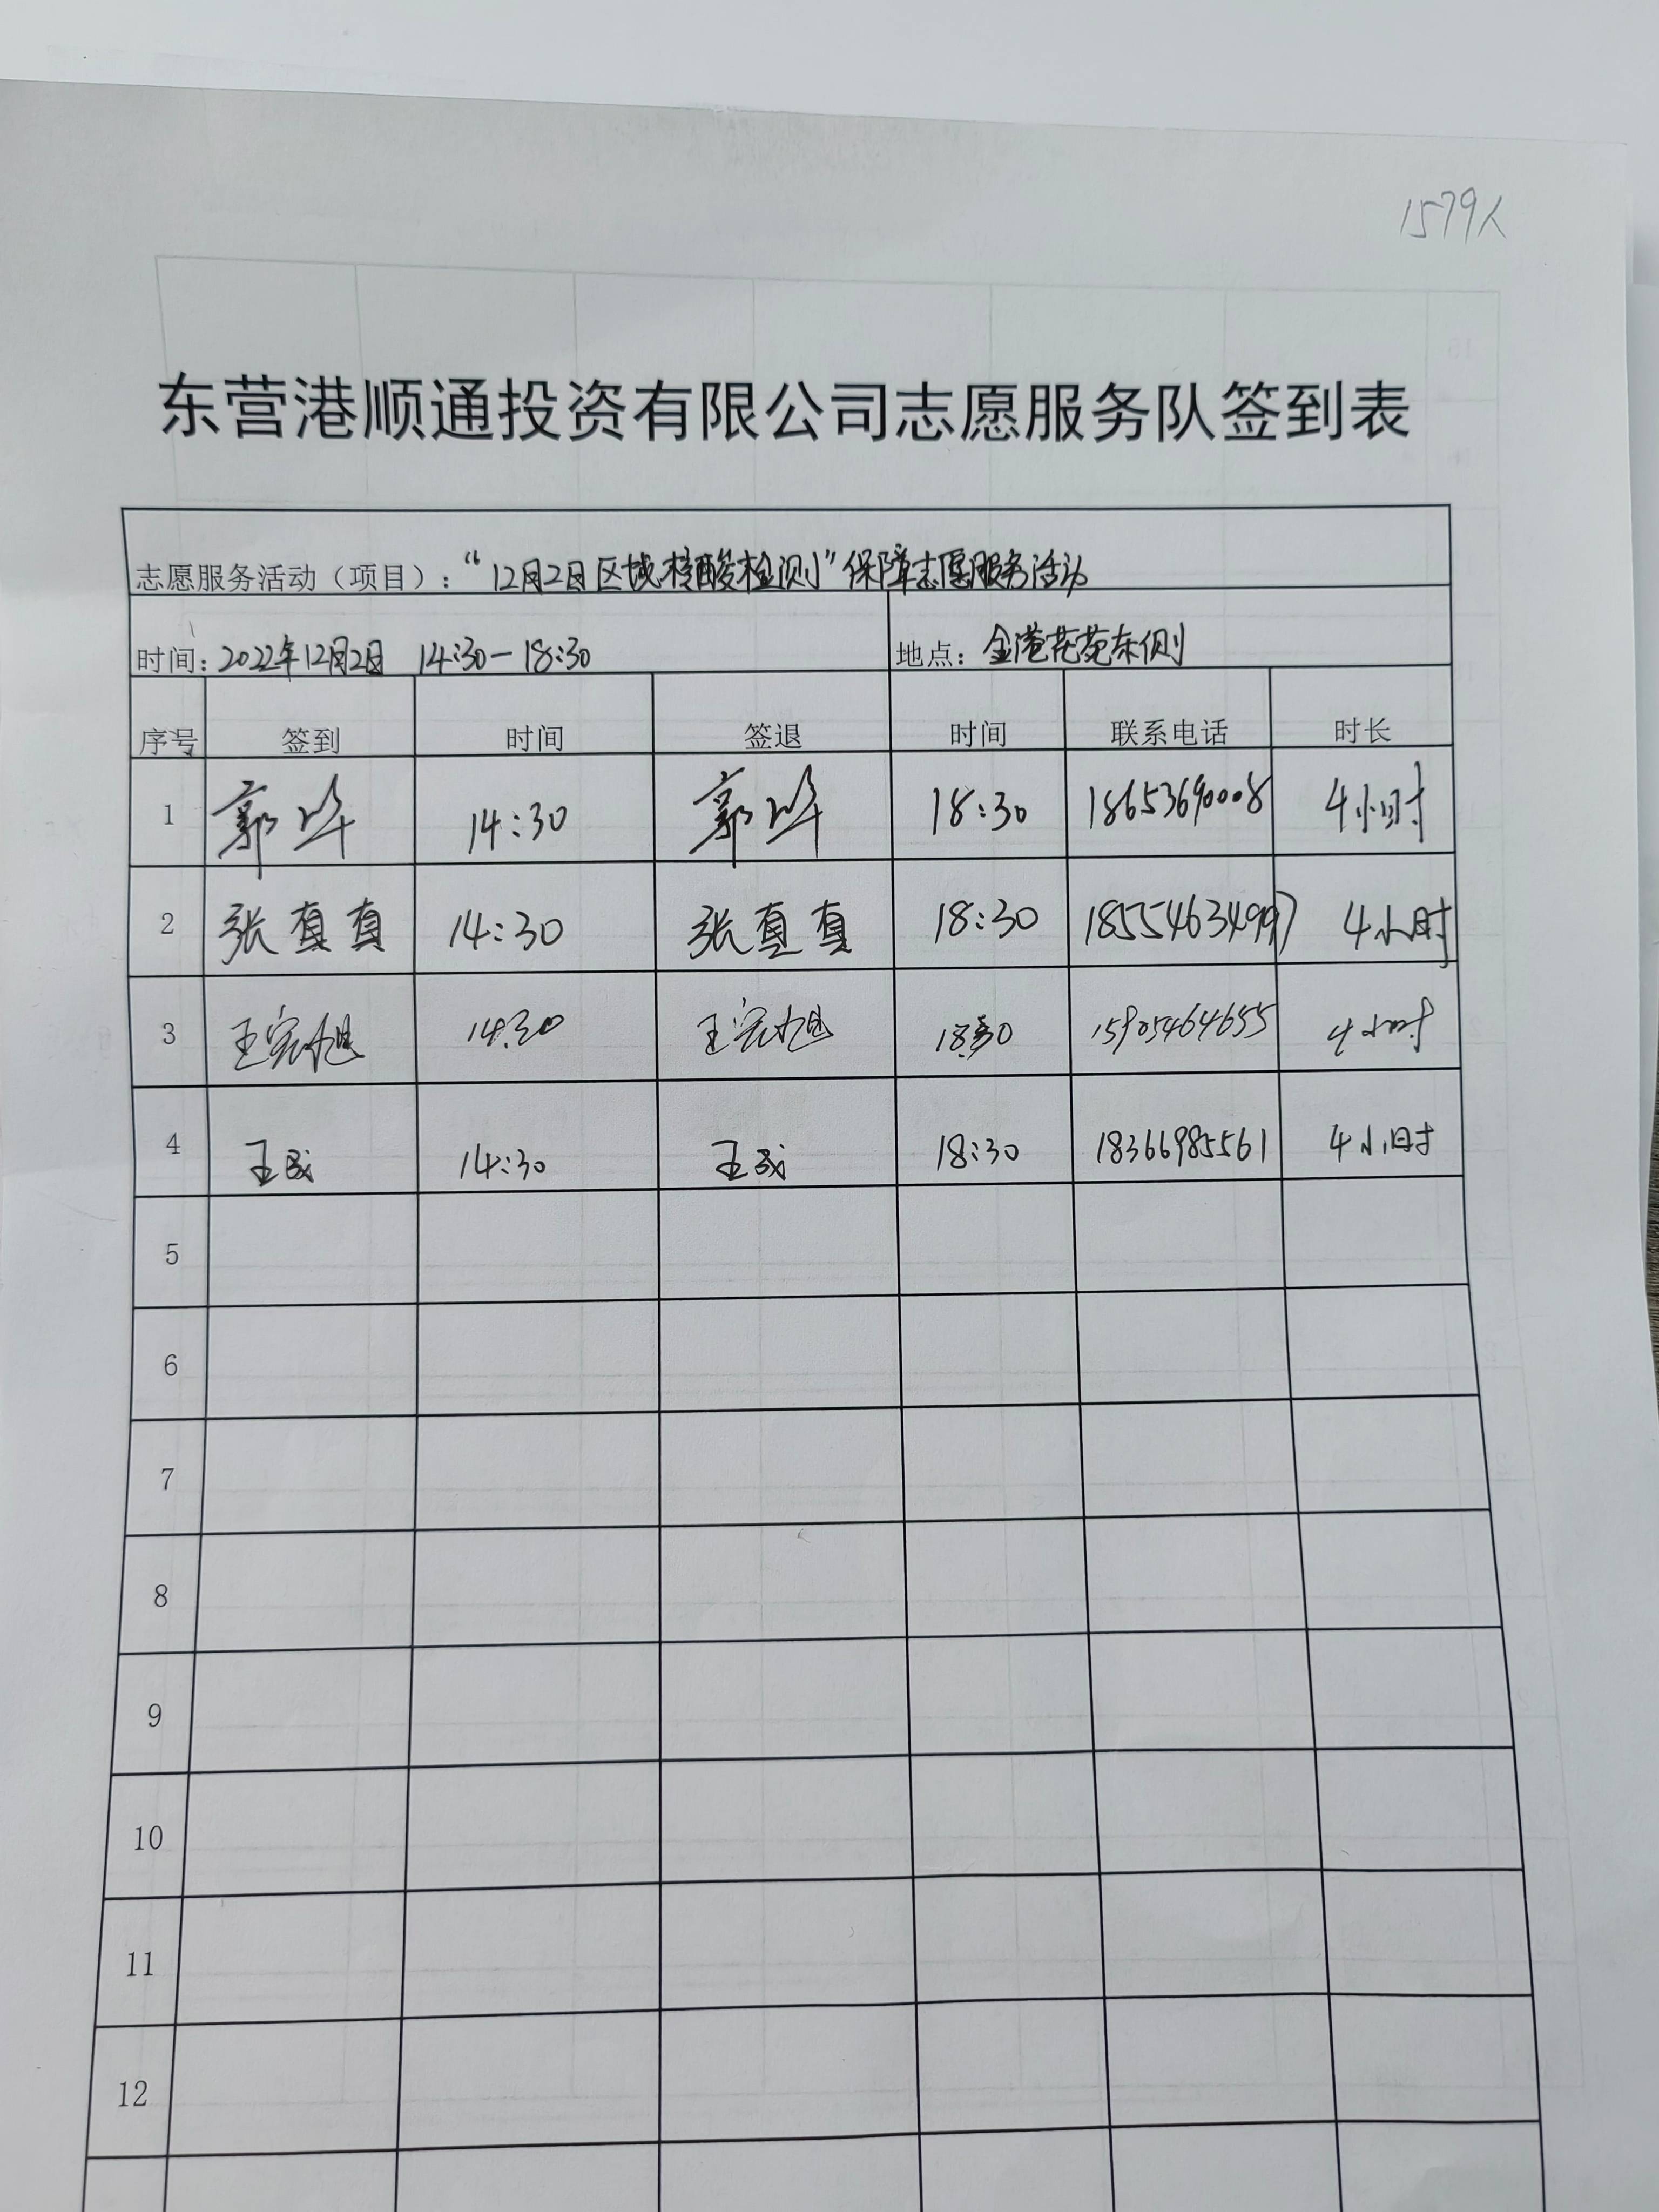 1579人
东营港顺通投资有限公司志愿服务队签到表
志愿服务活动（项目）：“12月2日区域核酸检测”保障志愿服务活动
时间：2022年12月2日 14:30-18:30 地点：金港花苑东侧
序号 签到 时间 签退 时间 联系电话 时长
1 郭 14:30 郭 18:30 18653690008 4小时
2 张真真 14:30 张真真 18:30 18554634997 4小时
3 王宗旭 14:30 王宗旭 18:30 15905464655 4小时
4 王 14:30 王 18:30 18366985561 4小时
5
6
7
8
9
10
11
12